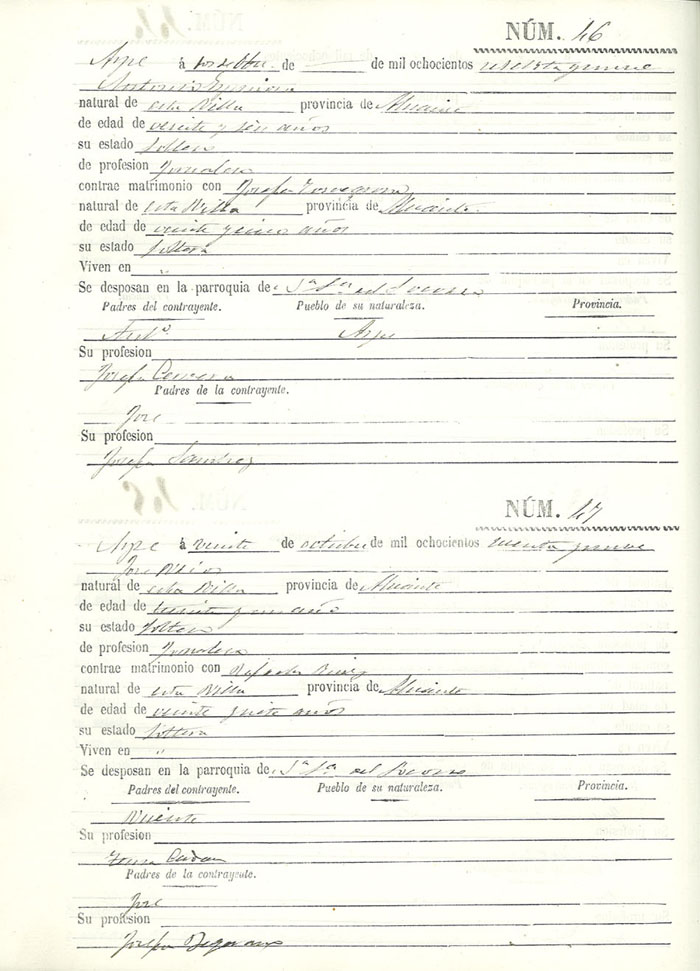 NÚM. 46
Aspe á de de mil ochocientos
Antonio
natural de esta Villa provincia de Alicante
de edad de veinte y seis años
su estado soltero
de profesion Jornalero
contrae matrimonio con Josefa
natural de esta Villa provincia de Alicante
de edad de veinte y cinco años
su estado soltera
Viven en "
Se desposan en la parroquia de Nª Sª del Socorro
Padres del contrayente. Pueblo de su naturaleza. Provincia.
Antº Aspe
Su profesion
Josefa
Padres de la contrayente.
José
Su profesion
Josefa Sanchez
NÚM. 47
Aspe á veinte de octubre de mil ochocientos
José
natural de esta Villa provincia de Alicante
de edad de veinte y un años
su estado soltero
de profesion Jornalero
contrae matrimonio con Rafaela
natural de esta Villa provincia de Alicante
de edad de veinte y siete años
su estado soltera
Viven en "
Se desposan en la parroquia de Nª Sª del Socorro
Padres del contrayente. Pueblo de su naturaleza. Provincia.
Vicente
Su profesion
Padres de la contrayente.
José
Su profesion
Josefa